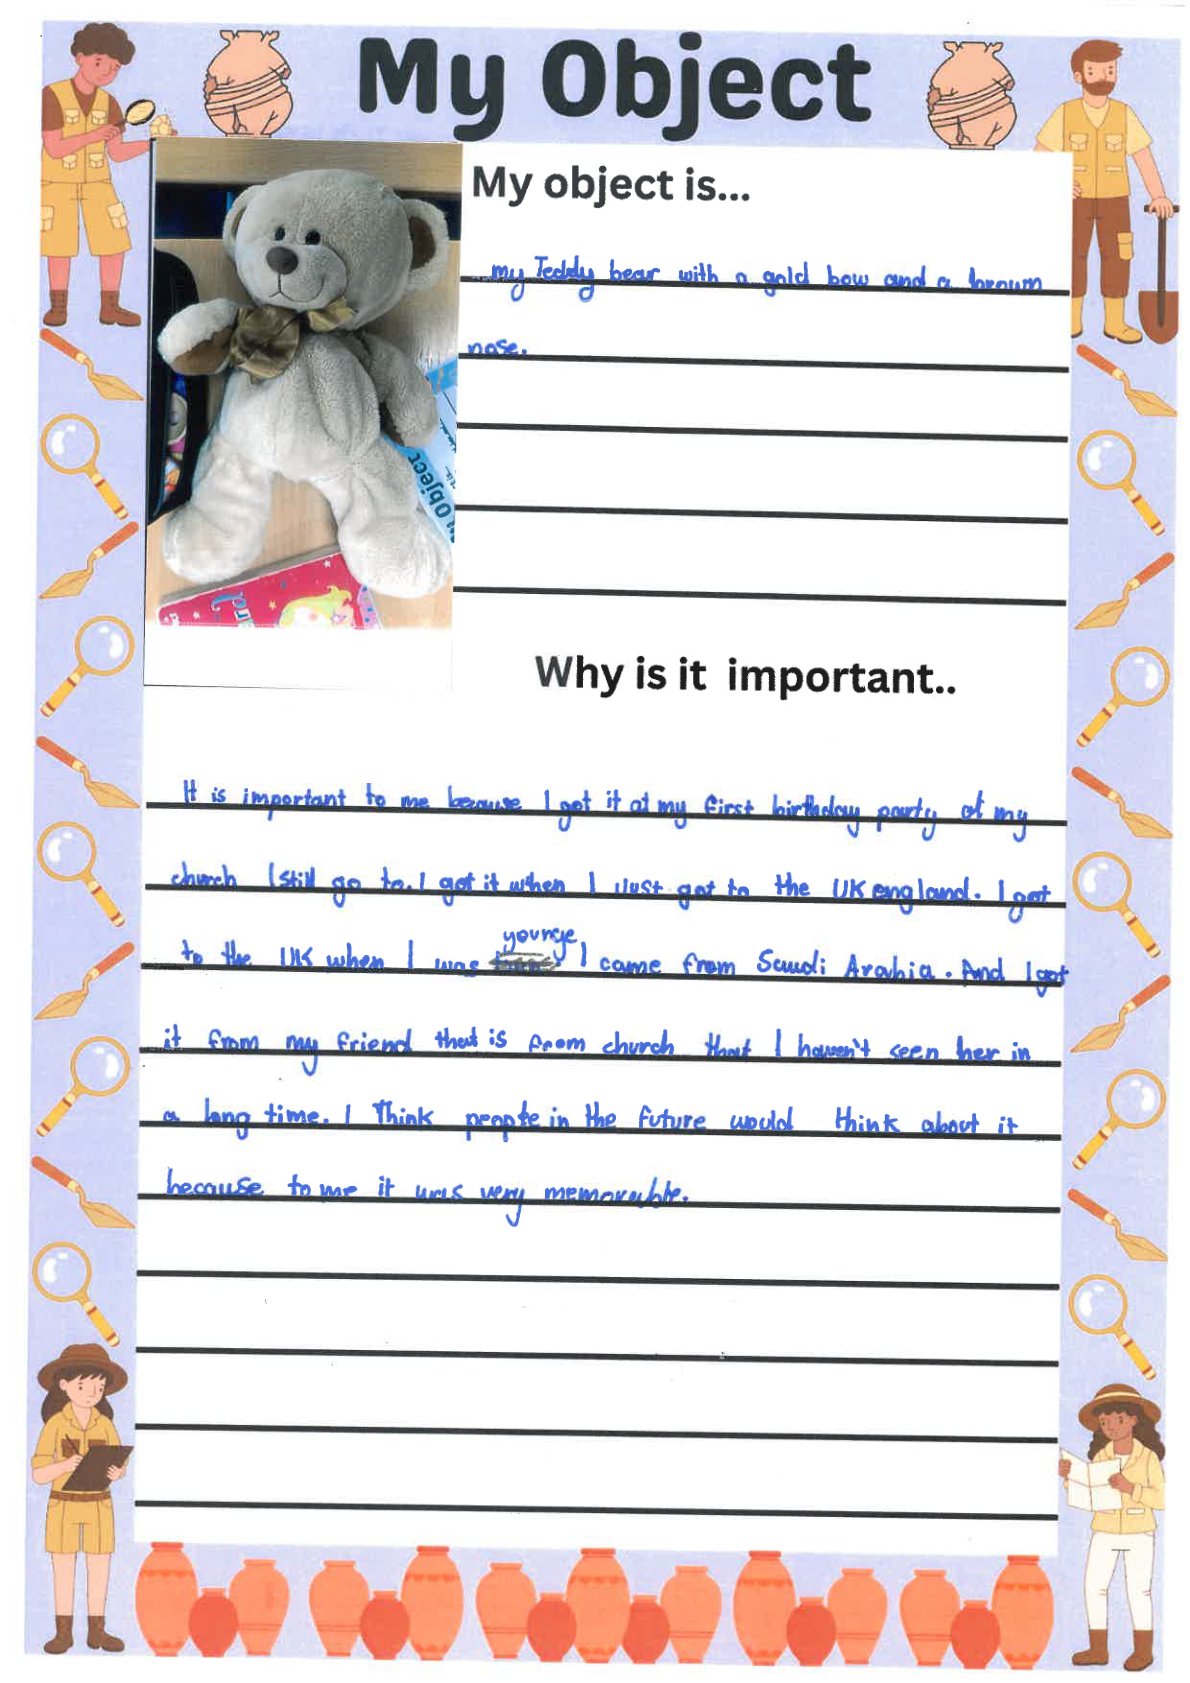 My Object
My object is...
my Teddy bear with a gold bow and a brown
nose.
y Object
Why is it important..
It is important to me because I got it at my first birthday party at my
church I still go to. I got it when I just got to the UK england. I got
younge
to the UK when I was I came from Saudi Arabia. And I got
it from my friend that is from church that I haven't seen her in
a long time. I Think people in the future would think about it
because to me it was very memorable.